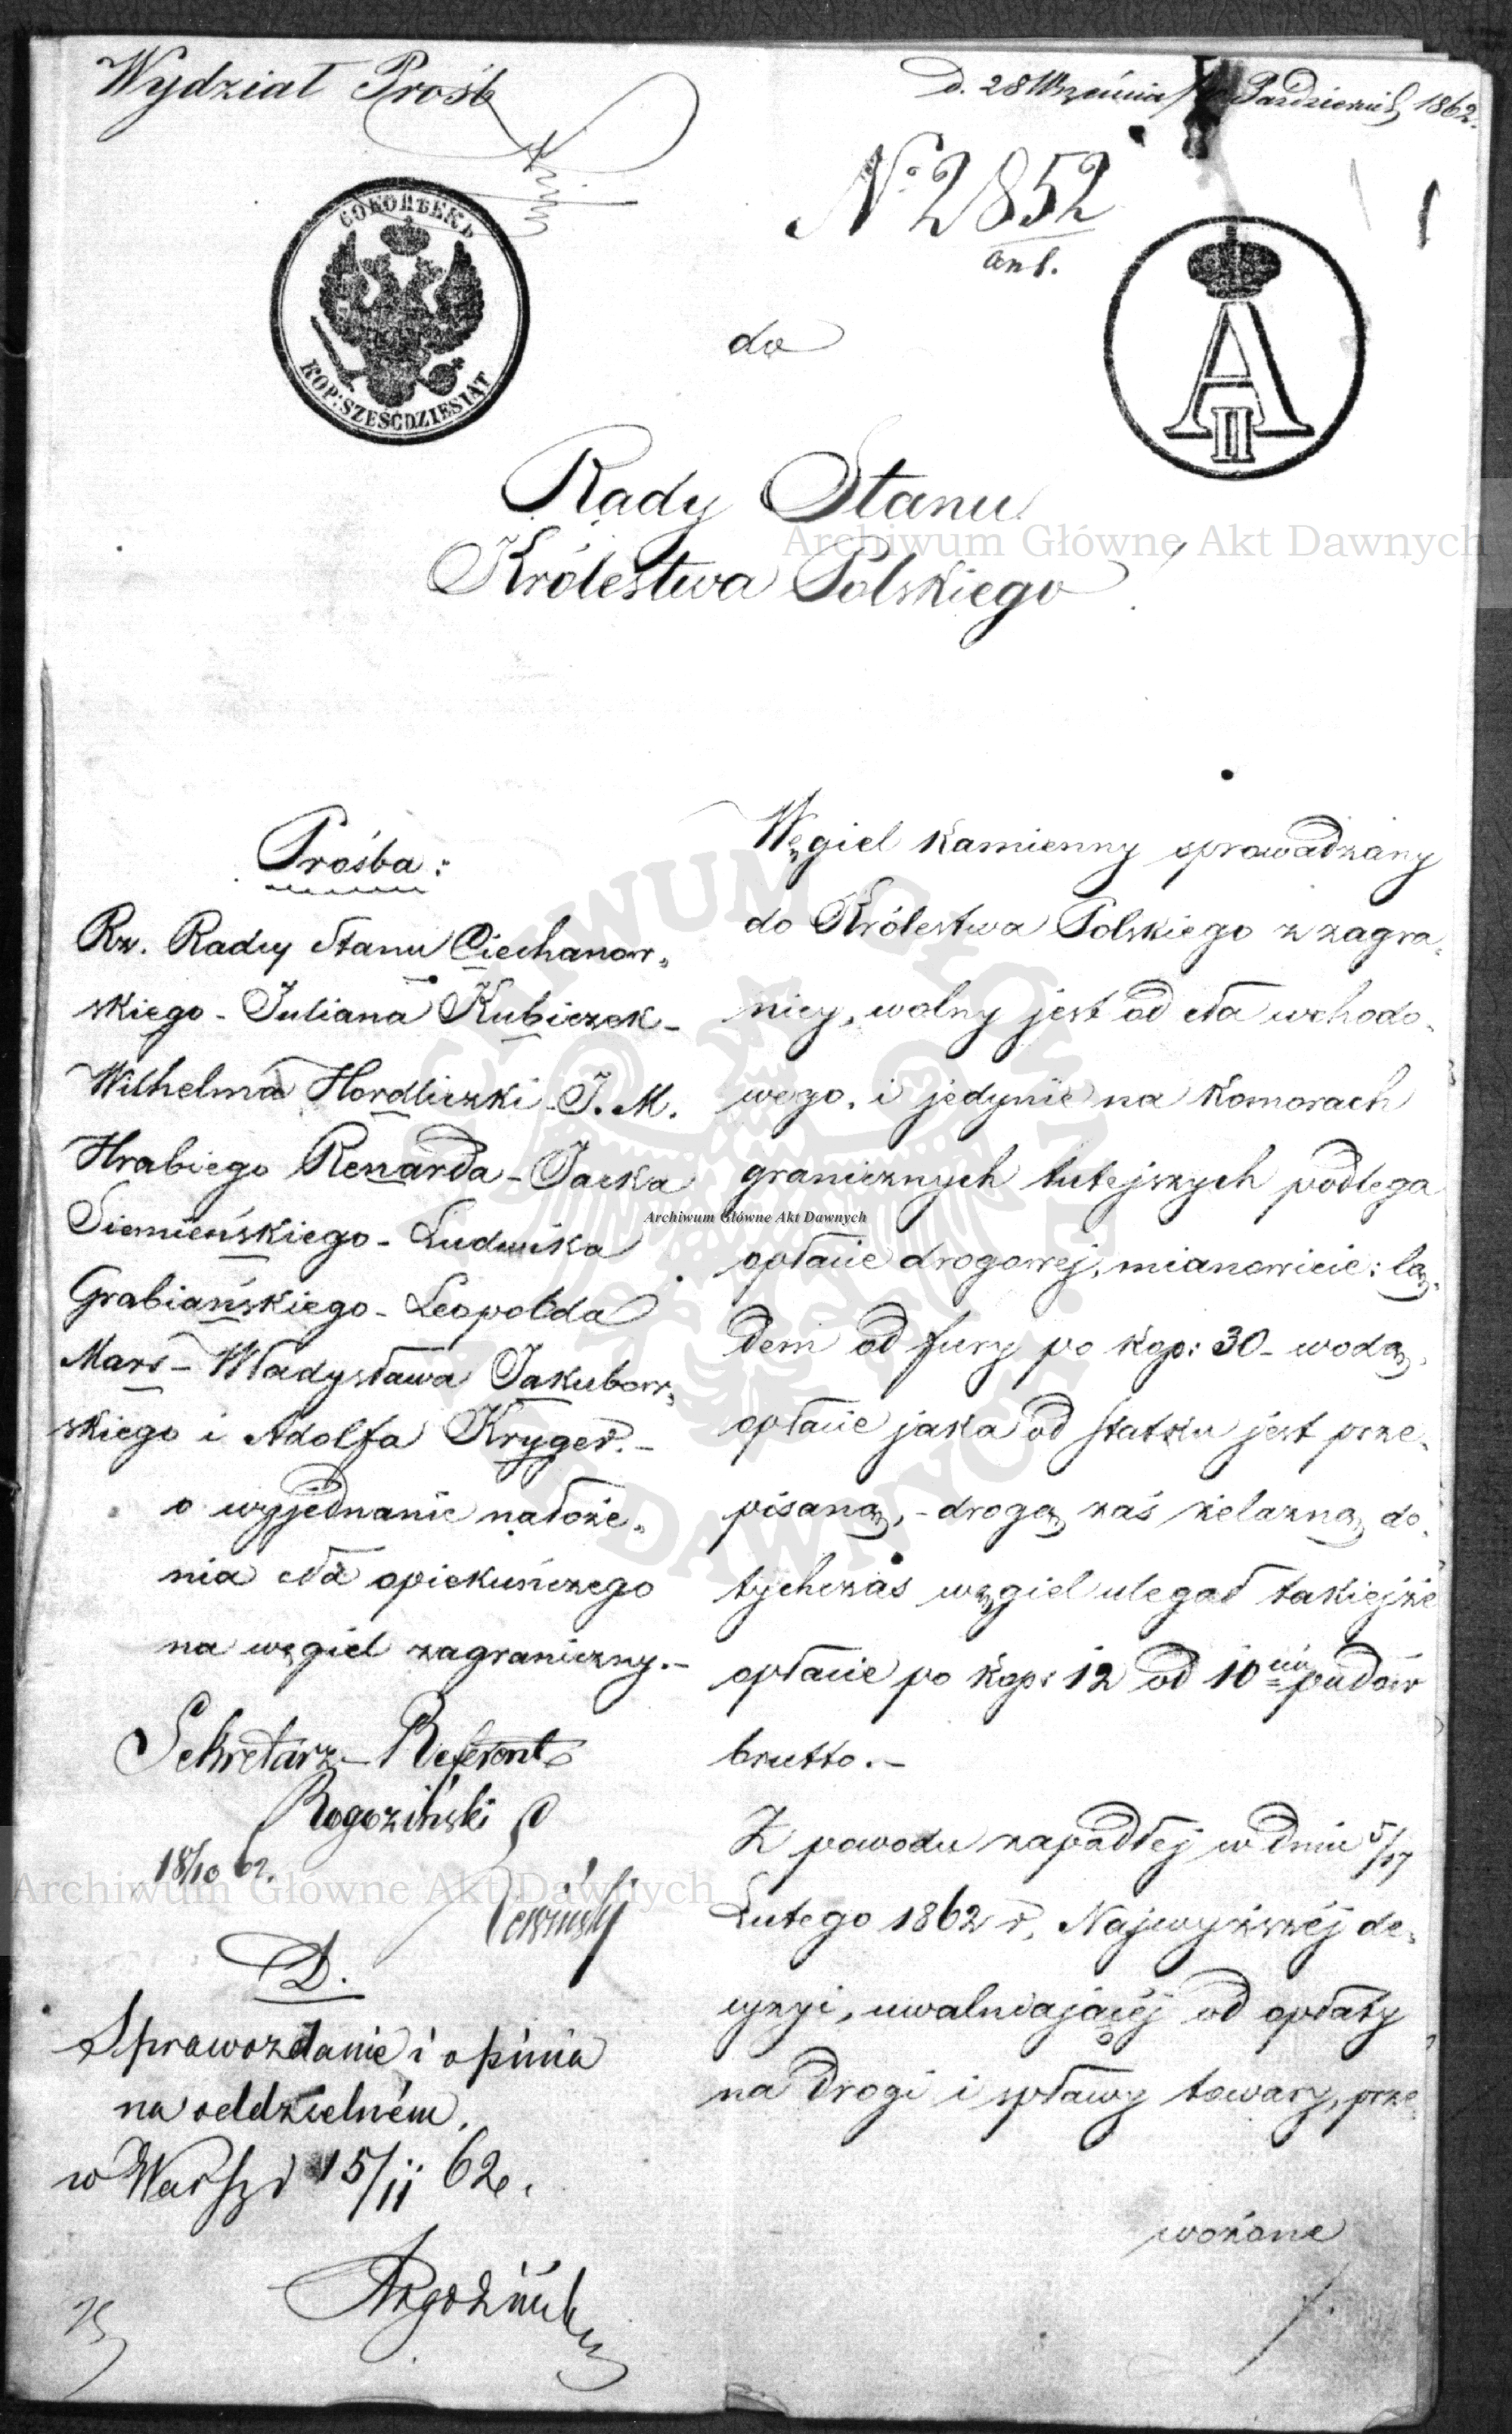 Wydział Prośb
D. 28 Września / Październik 1862.
№ 2852
ant.
1
СОКОПѢЕКЪ
KOP: SZEŚĆDZIESIĄT
A II
do
Rady Stanu
Królestwa Polskiego
Prośba:
Rz. Radcy Stanu Ciechanow„
skiego - Juliana Kubiczek -
Wilhelma Hordliczki - J. M.
Hrabiego Renarda - Jacka
Siemieńskiego - Ludwika
Grabiańskiego - Leopolda
Mars - Władysława Jakubow„
skiego i Adolfa Kryger. -
o wyjednanie nałoże„
nia cła opiekuńczego
na węgiel zagraniczny. -
Sekretarz - Referent
Rogoziński
18/10 62.
D.
Sprawozdanie i opinia
na oddzielném.
w Warsz d 15/11 62.
Węgiel kamienny sprowadzany
do Królestwa Polskiego z zagra„
nicy, wolny jest od cła wchodo„
wego, i jedynie na Komorach
granicznych tutejszych podlega
opłacie drogowej, mianowicie: lą„
dem od fury po kop: 30 - wodą,
opłacie jaka od statku jest prze„
pisaną, - drogą zaś żelazną do„
tychczas węgiel ulegał takiejże
opłacie po kop: 12 od 10ciu pudów
brutto. -
Z powodu zapadłej w dniu 5/17
Lutego 1862 r, Najwyższéj de„
cyzyi, uwalniającéj od opłaty
na drogi i spławy towary, prze„
wożone
Archiwum Główne Akt Dawnych
Archiwum Główne Akt Dawnych
Archiwum Główne Akt Dawnych
ARCHIWUM GŁÓWNE AKT DAWNYCH